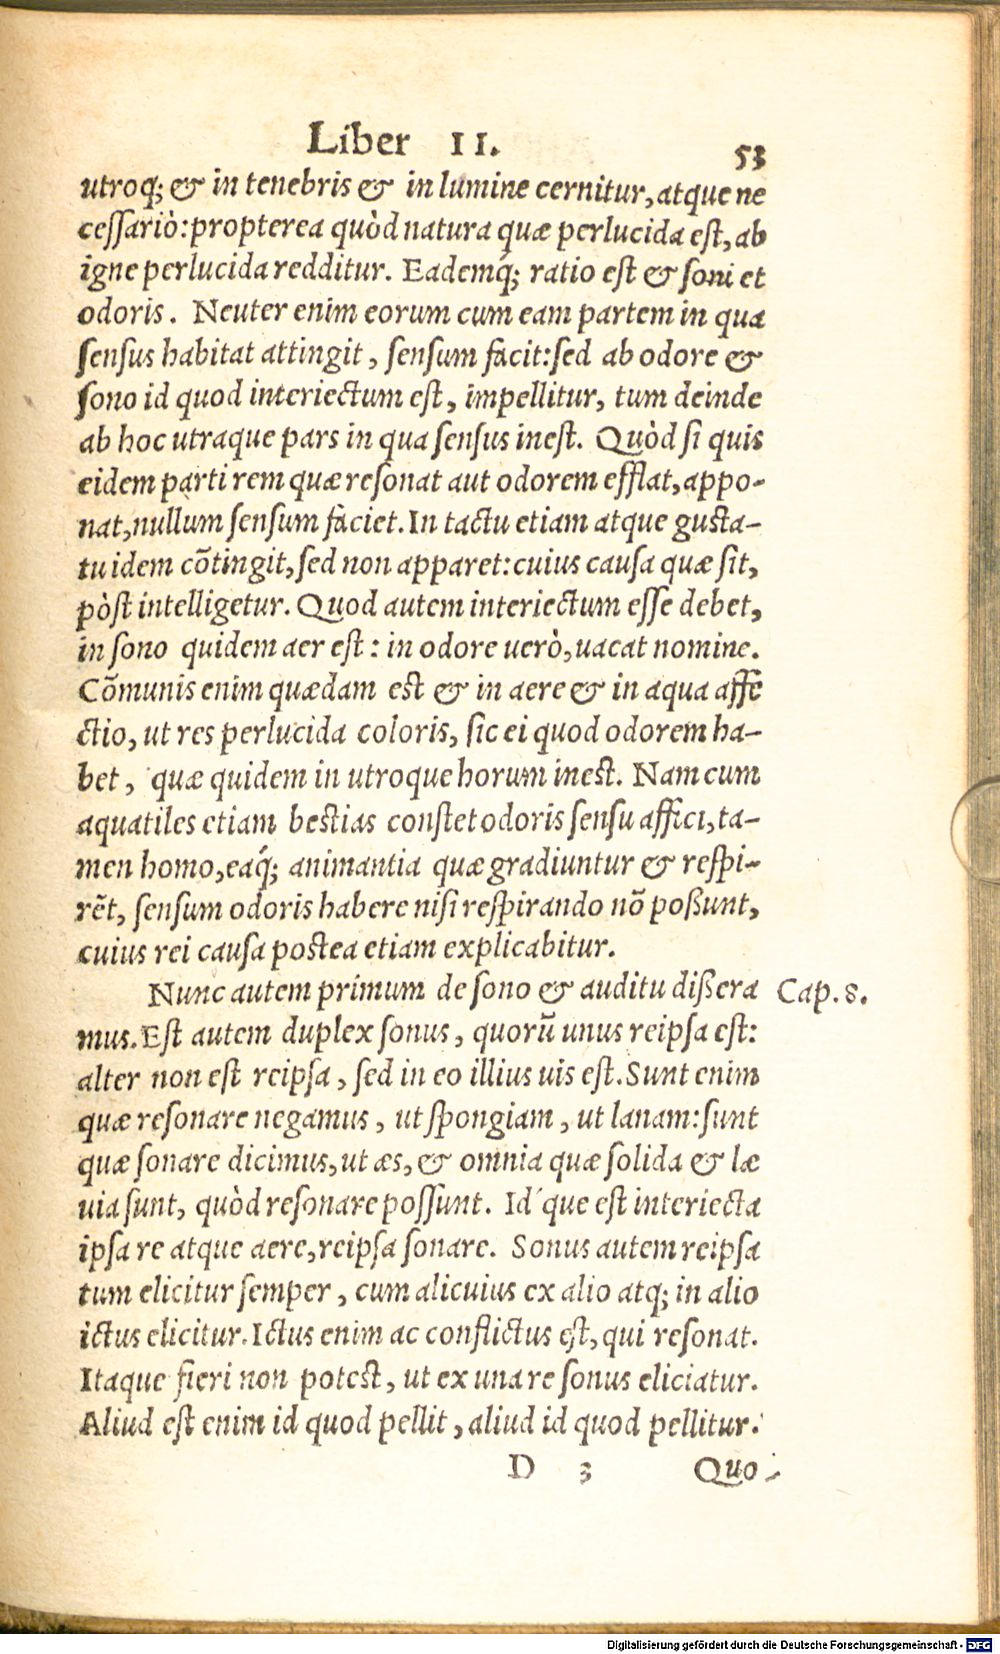 Liber II.
53
utroq; & in tenebris & in lumine cernitur, atque ne
ceſſariò: propterea quòd natura quæ perlucida eſt, ab
igne perlucida redditur. Eademq́; ratio eſt & ſoni et
odoris. Neuter enim eorum cum eam partem in qua
ſenſus habitat attingit, ſenſum facit: ſed ab odore &
ſono id quod interiectum eſt, impellitur, tum deinde
ab hoc utraque pars in qua ſenſus ineſt. Quòd ſi quis
eidem parti rem quæ reſonat aut odorem efflat, appo-
nat, nullum ſenſum faciet. In tactu etiam atque guſta-
tu idem cōtingit, ſed non apparet: cuius cauſa quæ ſit,
pòſt intelligetur. Quod autem interiectum eſſe debet,
in ſono quidem aer eſt: in odore uerò, uacat nomine.
Cōmunis enim quædam eſt & in aere & in aqua affe
ctio, ut res perlucida coloris, ſic ei quod odorem ha-
bet, quæ quidem in utroque horum ineſt. Nam cum
aquatiles etiam beſtias conſtet odoris ſenſu affici, ta-
men homo, eaq́; animantia quæ gradiuntur & reſpi-
rēt, ſenſum odoris habere niſi reſpirando nō poßunt,
cuius rei cauſa poſtea etiam explicabitur.
Nunc autem primum de ſono & auditu dißera
Cap. 8.
mus. Eſt autem duplex ſonus, quorū unus reipſa eſt:
alter non eſt reipſa, ſed in eo illius uis eſt. Sunt enim
quæ reſonare negamus, ut ſpongiam, ut lanam: ſunt
quæ ſonare dicimus, ut æs, & omnia quæ ſolida & læ
uia ſunt, quòd reſonare poſſunt. Id que eſt interiecta
ipſa re atque aere, reipſa ſonare. Sonus autem reipſa
tum elicitur ſemper, cum alicuius ex alio atq; in alio
ictus elicitur. Ictus enim ac conflictus eſt, qui reſonat.
Itaque fieri non poteſt, ut ex una re ſonus eliciatur.
Aliud eſt enim id quod pellit, aliud id quod pellitur.
D 3 Quo-
Digitalisierung gefördert durch die Deutsche Forschungsgemeinschaft - DFG